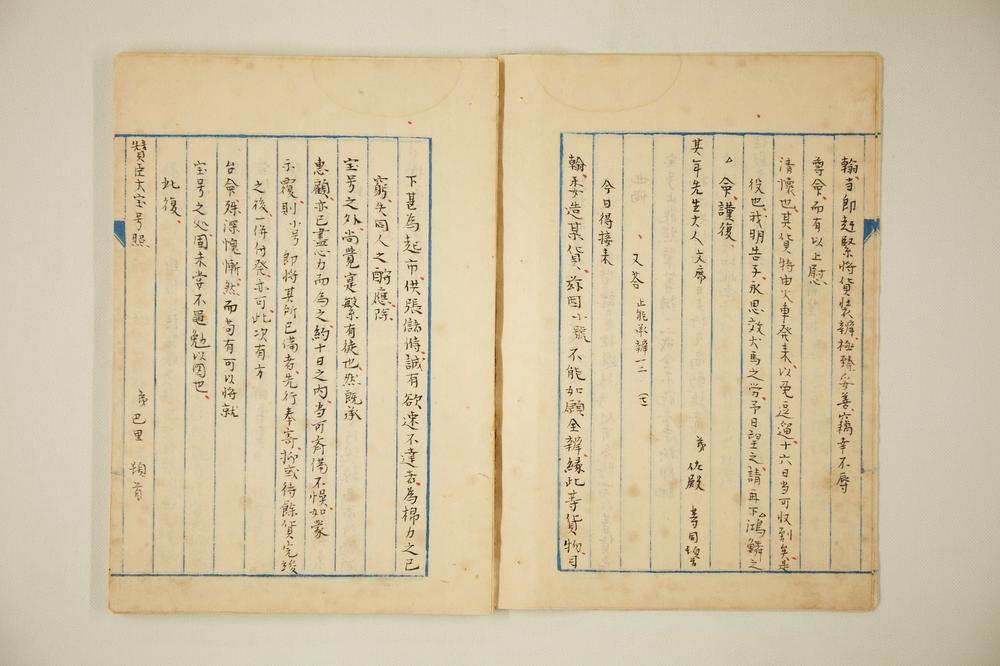 翰音即赶緊将貨裝辦極臻妥善竊幸不辱
尊令而有以上慰
清懷也其貨特由火車發来以免逗遛十六日当可收到矣是
役也我明告子永思效犬馬之労予日望之請再下鴻鱗之
令謹復
其年先生大人文席
弟 佐殿 等同頓首
又答 止能承辦一二
今日得接来
翰委造某貨茲因小號不能如願全辦緣此等貨物目
下甚為起市供張儲偫誠有欲速不達者為棉力之已
窮失同人之酧應除
宝号之外尚覺寔繁有徒也然既承
惠顧亦已盡心力而為之約十日之内当可齐備不悞如蒙
示覆則小号即将其所已備者先行奉寄抑或待餘貨完竣
之後一併付發亦可此次有方
台命殊深愧慚然而苟有可以将就
宝号之处固未嘗不黽勉以図也
此復
贊臣大宝号照
弟 巴里 頓首